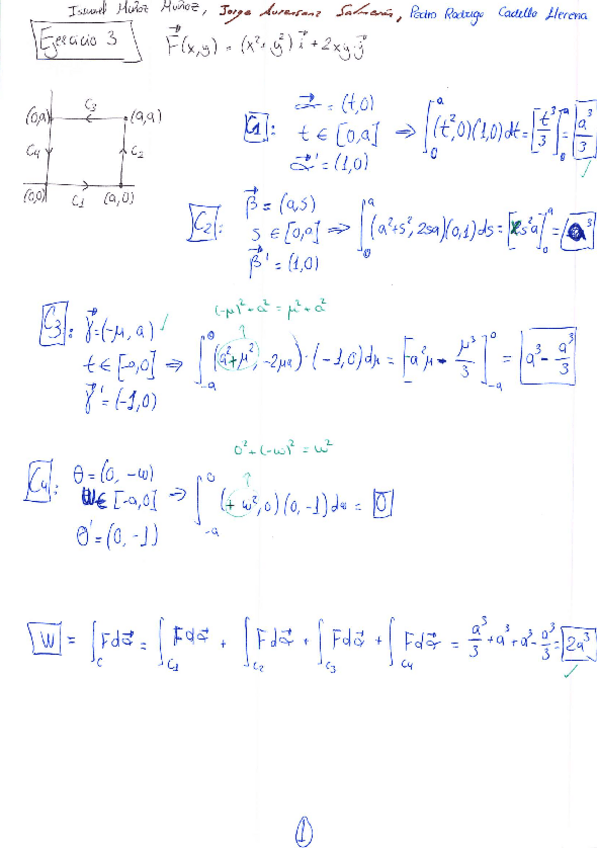 Ismael Muñoz Muñoz, Jorge Salmerón, Pedro Rodrigo Castello Llerena
Ejercicio 3 F⃗(x,y) = (x²+y²)i⃗ + 2xy j⃗
(0,a) C₃ (a,a)
C₄ C₂
(0,0) C₁ (a,0)
C₁: α⃗ = (t,0)
t ∈ [0,a] ⇒ ∫₀ᵃ (t²,0)(1,0)dt = [t³/3]₀ᵃ = a³/3 ✓
α⃗' = (1,0)
C₂: β⃗ = (a,s)
s ∈ [0,a] ⇒ ∫₀ᵃ (a²+s², 2sa)(0,1)ds = [s²a]₀ᵃ = a³
β⃗' = (1,0)
(-μ)²+a² = μ²+a²
C₃: γ⃗ = (-μ, a) ✓
t ∈ [-a,0] ⇒ ∫₋ₐ⁰ (a²+μ², -2μa)·(-1,0)dμ = [-a²μ - μ³/3]₋ₐ⁰ = -a³ - a³/3
γ⃗' = (-1,0)
0²+(-w)² = w²
C₄: θ = (0, -w)
w ∈ [-a,0] ⇒ ∫₋ₐ⁰ (+w²,0)(0,-1)dw = 0
θ' = (0,-1)
W = ∫_C F dα⃗ = ∫_C₁ F dα⃗ + ∫_C₂ F dα⃗ + ∫_C₃ F dα⃗ + ∫_C₄ F dα⃗ = a³/3 + a³ + a³ - a³/3 = 2a³ ✓
1